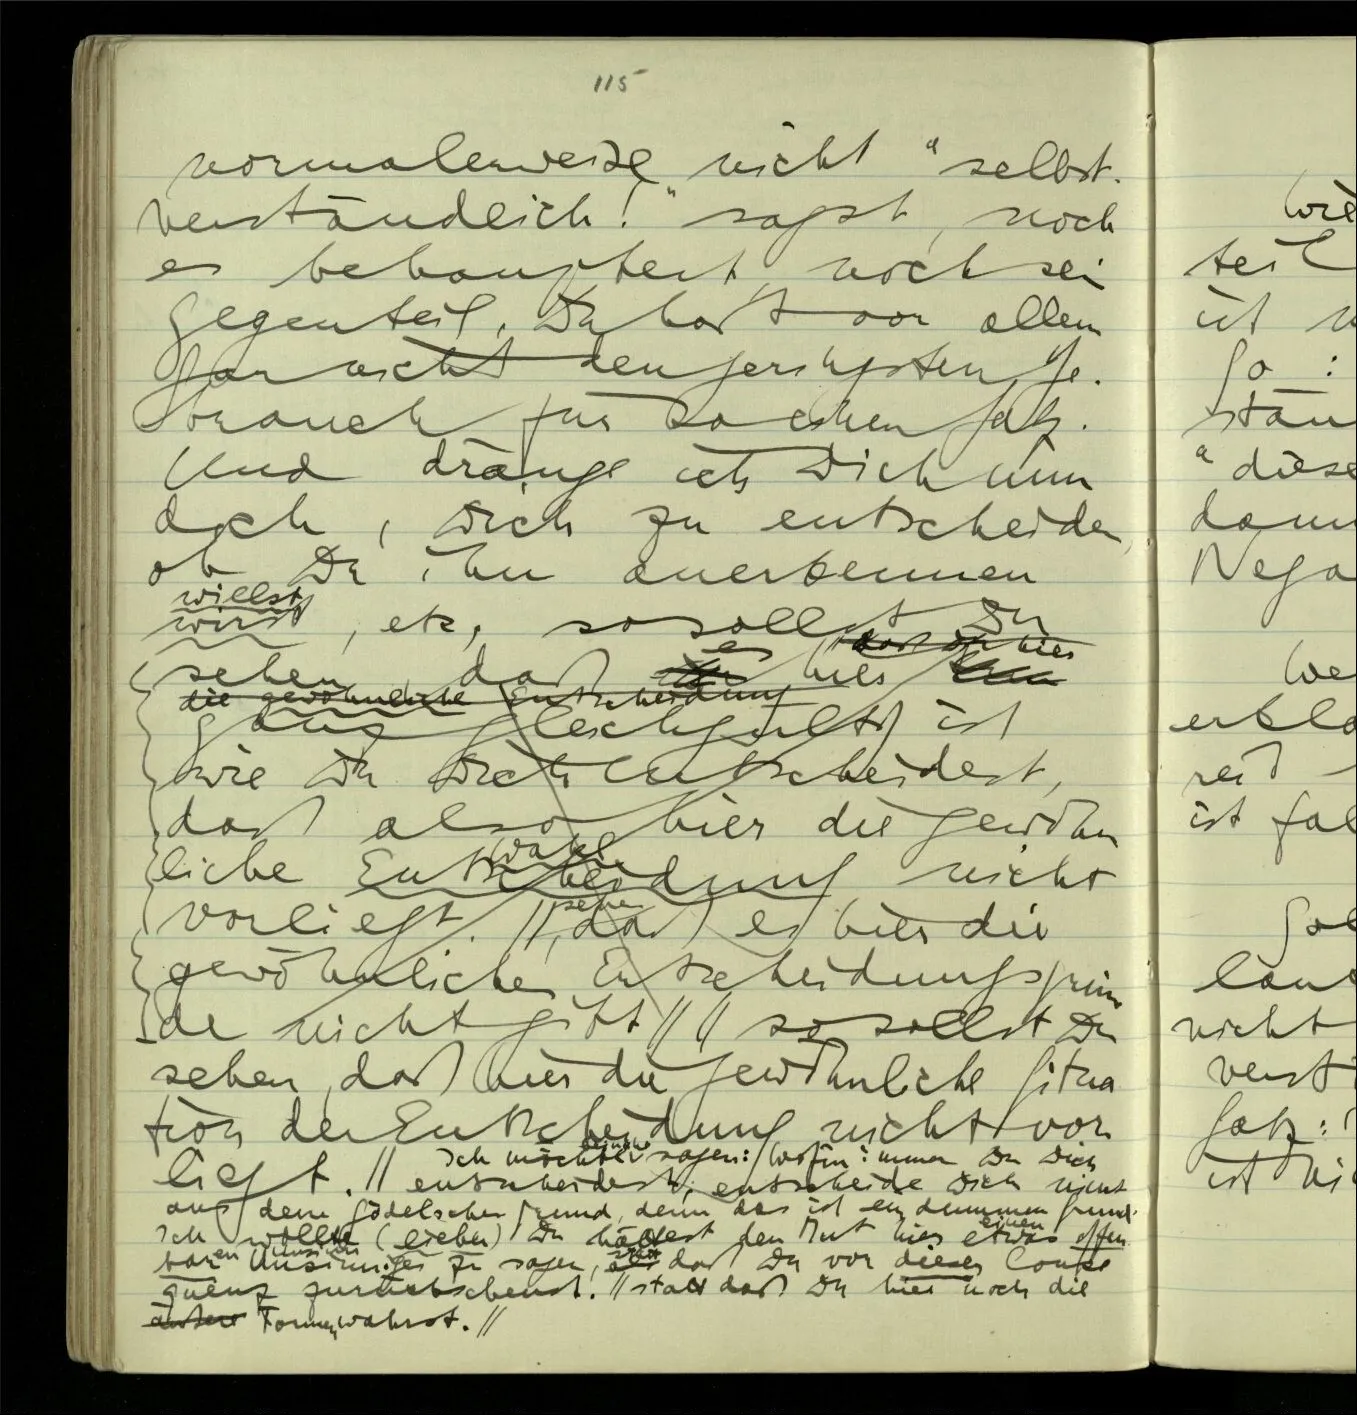 115
normalerweise nicht "selbst-
verständlich!" sagst, noch
es behauptest, noch sein
Gegenteil. Du hast vor allem
gar nicht den geringsten Ge-
brauch für so einen Satz.
Und dränge ich Dich nun
doch, Dich zu entscheiden,
ob Du ihn anerkennen
willst
wirst, etc, so sollst Du
es daß Du hier
sehen, daß hier
die gewöhnliche Entscheidung
ganz gleichgültig ist
wie Du Dich entscheidest,
daß also hier die gewöhn
Wahl
liche Entscheidung nicht
vorliegt. //, sehen
daß es hier die
gewöhnlichen Entscheidungsgrün
de nicht gibt // // so sollst Du
sehen, daß hier die gewöhnliche Situa
tion der Entscheidung nicht vor
liegt. // Ich möchte beinahe sagen: Wofür immer Du Dich
entscheidest, entscheide Dich nicht
aus dem Gödelschen Grund, denn das ist ein dummer Grund.
Ich wollte (lieber) Du hättest den Mut hier etwas offen
einen
baren Unsinn
Unsinniges zu sagen, als daß Du vor dieser Conse
statt
quenz zurückscheust. // statt daß Du hier noch die
äußere Formen wahrst. //
Wie
teil
ist
So :
stän
"diese
dann
Nega
We
erklä
sei
ist fal
Sol
lan
nicht
verst
Satz:
ist